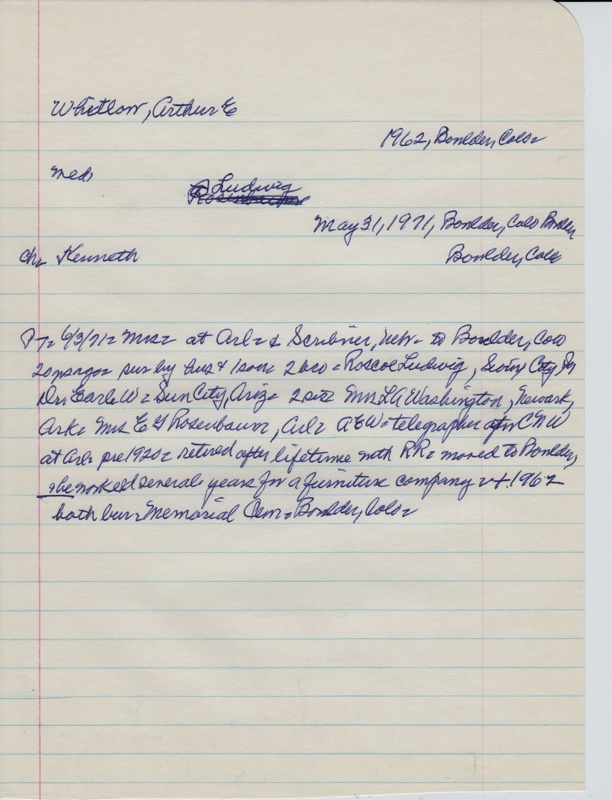 Whitlow, Arthur E
1962, Boulder, Colo=
Med
Ludwig
May 31, 1971, Boulder, Colo
Ch= Kenneth
Boulder, Colo
T= 6/3/71= Mrs= at Arl= & Scribner, Neb= to Boulder, Colo
20 yrs ago= sur by hus & 1 son= 2 bro= Roscoe Ludwig, Sioux City, Ia
Dr. Earle W= Sun City, Ariz= 2 sis= Mrs LA Washington, Newark,
Ark= Mrs E G Rosenbaum, Arl= AEW= telegrapher C N W
at Arl= pre 1920= retired after lifetime with RR= moved to Boulder,
& he worked several years for a furniture company = +1962
both bur= Memorial Cem= Boulder, Colo=